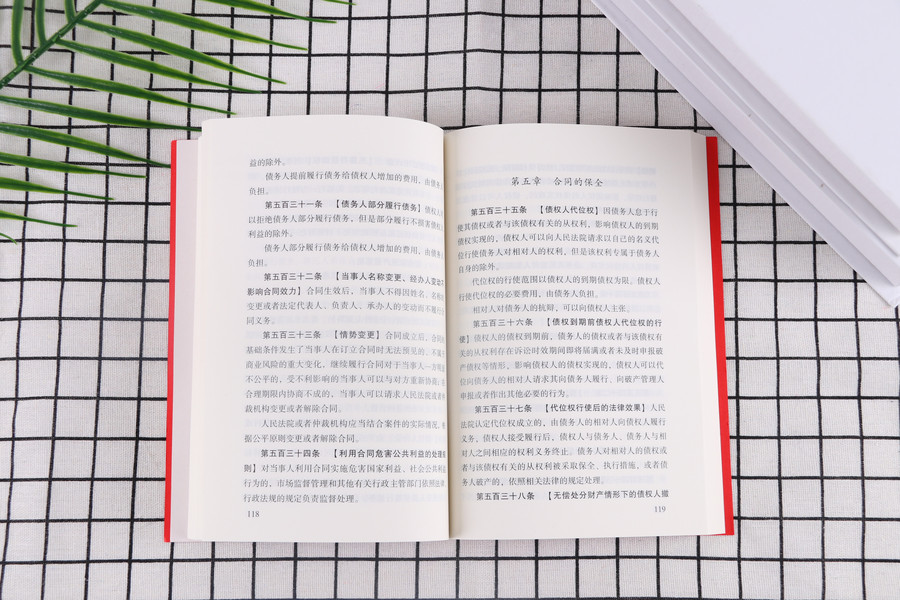 益的除外。
债务人提前履行债务给债权人增加的费用，由债务
负担。
第五百三十一条 【债务人部分履行债务】债权人
以拒绝债务人部分履行债务，但是部分履行不损害债权
利益的除外。
债务人部分履行债务给债权人增加的费用，由债务
负担。
第五百三十二条 【当事人名称变更、经办人变动
影响合同效力】合同生效后，当事人不得因姓名、名称的
变更或者法定代表人、负责人、承办人的变动而不履行
同义务。
第五百三十三条 【情势变更】合同成立后，合同的
基础条件发生了当事人在订立合同时无法预见的、不属
商业风险的重大变化，继续履行合同对于当事人一方明
不公平的，受不利影响的当事人可以与对方重新协商；
合理期限内协商不成的，当事人可以请求人民法院或者
裁机构变更或者解除合同。
人民法院或者仲裁机构应当结合案件的实际情况，
据公平原则变更或者解除合同。
第五百三十四条 【利用合同危害公共利益的处理
则】对当事人利用合同实施危害国家利益、社会公共利
行为的，市场监督管理和其他有关行政主管部门依照法律、
行政法规的规定负责监督处理。
118
第五章 合同的保全
第五百三十五条 【债权人代位权】因债务人怠于行
使其债权或者与该债权有关的从权利，影响债权人的到期
债权实现的，债权人可以向人民法院请求以自己的名义代
位行使债务人对相对人的权利，但是该权利专属于债务人
自身的除外。
代位权的行使范围以债权人的到期债权为限。债权人
行使代位权的必要费用，由债务人负担。
相对人对债务人的抗辩，可以向债权人主张。
第五百三十六条 【债权到期前债权人代位权的行
使】债权人的债权到期前，债务人的债权或者与该债权有
关的从权利存在诉讼时效期间即将届满或者未及时申报破
产债权等情形，影响债权人的债权实现的，债权人可以代
位向债务人的相对人请求其向债务人履行、向破产管理人
申报或者作出其他必要的行为。
第五百三十七条 【代位权行使后的法律效果】人民
法院认定代位权成立的，由债务人的相对人向债权人履行
义务，债权人接受履行后，债权人与债务人、债务人与相
对人之间相应的权利义务终止。债务人对相对人的债权或
者与该债权有关的从权利被采取保全、执行措施，或者债
务人破产的，依照相关法律的规定处理。
第五百三十八条 【无偿处分财产情形下的债权人撤
119